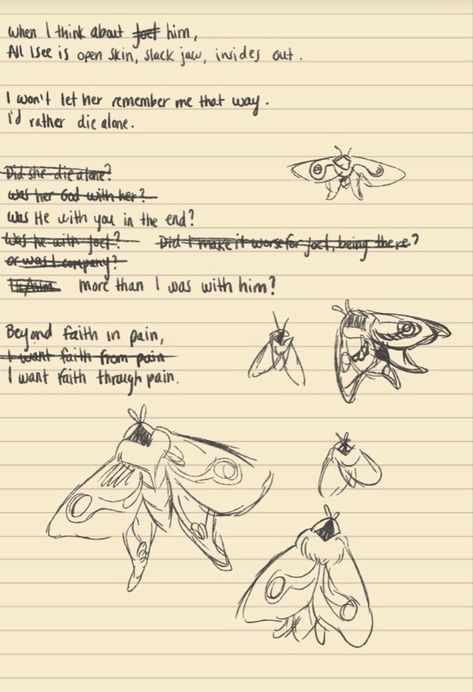 when I think about Joel him,
All I see is open skin, slack jaw, insides out.
I won't let her remember me that way.
I'd rather die alone.
Did she die alone?
was her God with her?
Was He with you in the end?
Was he with Joel? Did I make it worse for Joel, being there?
or was I company?
more than I was with him?
Beyond faith in pain,
I want faith from pain
I want faith through pain.